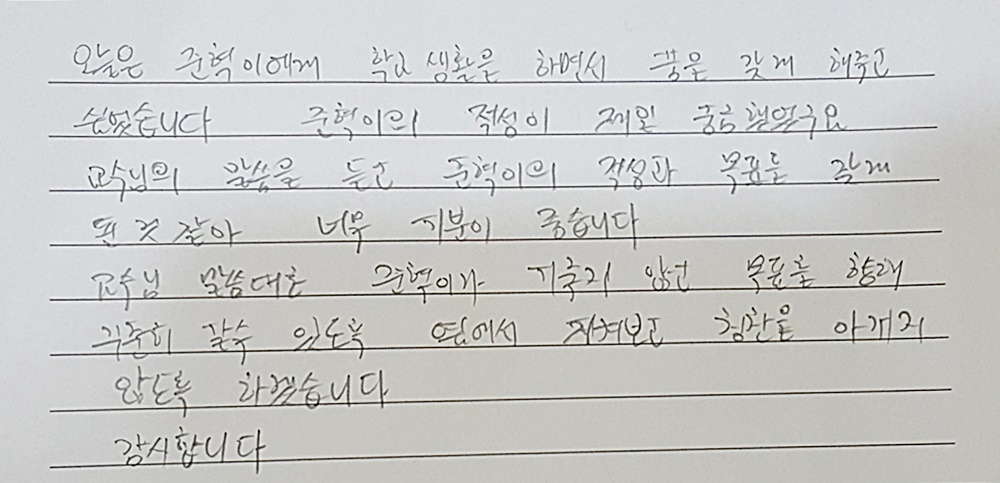 오늘은 준혁이에게 학교 생활은 하면서 꿈은 갖게 해주고
싶었습니다 준혁이의 적성이 제일 궁금했었구요
교수님의 말씀을 듣고 준혁이의 적성과 목표를 갖게
된 것 같아 너무 기분이 좋습니다
교수님 말씀대로 준혁이가 기죽지 않고 목표를 향해
꾸준히 갈수 있도록 옆에서 지켜보고 칭찬을 아깨지
않도록 하겠습니다
감사합니다